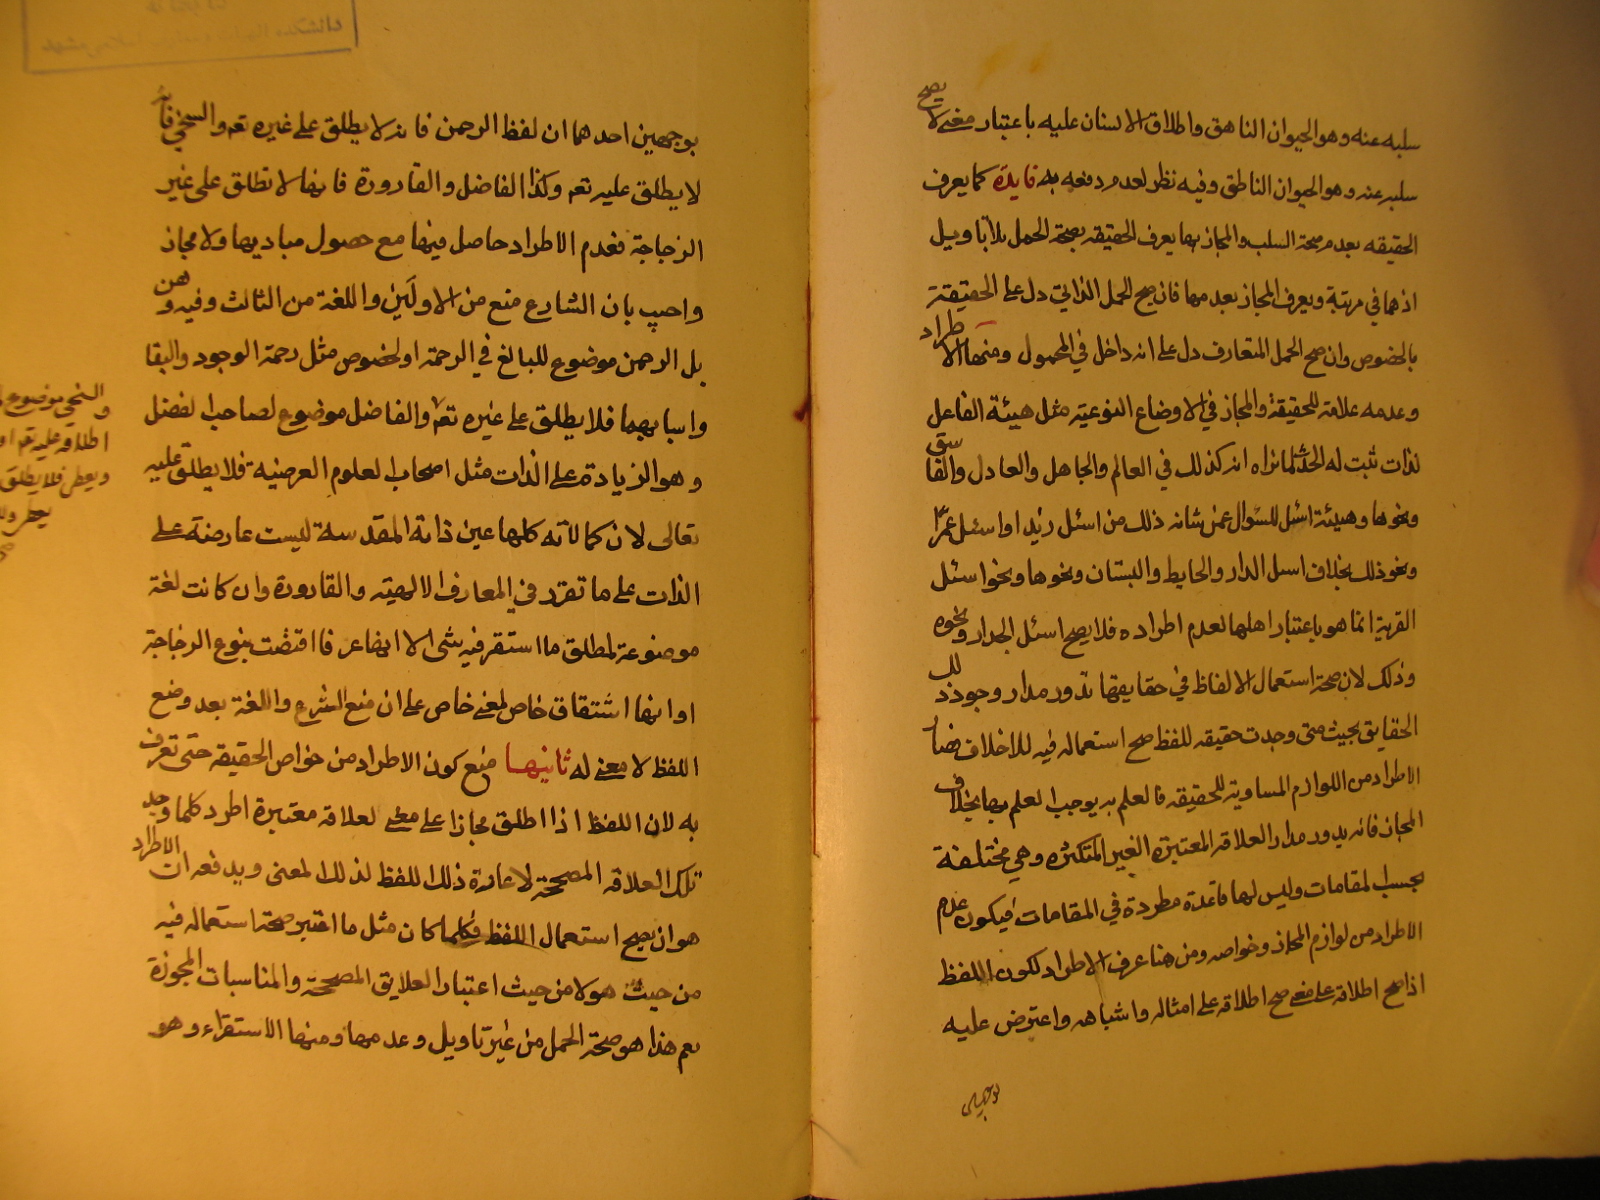 سلبه عنه وهو الحيوان الناهق واطلاق الانسان عليه باعتبار معنى لا يصح
سلبه عنه وهو الحيوان الناطق وفيه نظر لعدم دفعه به فايدة كما يعرف
الحقيقه بعدم صحة السلب والمجاز بها يعرف الحقيقه بصحة الحمل بلا تاويل
اذ هما في مرتبة ويعرف المجاز بعدمها فان صح الحمل الذاتي دل على الحقيقة
بالخصوص وان صح الحمل المتعارف دل على انه داخل في المحمول ومنها الاطراد
وعدمه علامة للحقيقة والمجاز في الاوضاع النوعية مثل هيئة الفاعل
لذات ثبت له الحدث فانراه انه كذلك في العالم والجاهل والعادل والفاسق
ونحوها وهيئة اسئل للسؤال عمن شانه ذلك من اسئل زيدا واسئل عمرا
ونحو ذلك بخلاف اسئل الدار والحايط والبستان ونحوها ونحو اسئل
القرية انما هو باعتبار اهلها لعدم اطراده فلا يصح اسئل الجدار ونحوه
وذلك لان صحة استعمال الالفاظ في حقايقها تدور مدار وجود ذلك
الحقايق بحيث متى وجدت حقيقه للفظ صح استعماله فيه للاخلاف فصار
الاطراد من اللوازم المساوية للحقيقه فالعلم به يوجب العلم بها بخلاف
المجاز فانه يدور مدار العلاقه المعتبره الغير المتكثره وهي مختلفة
بحسب المقامات وليس لها قاعدة مطردة في المقامات فيكون عدم
الاطراد من لوازم المجاز وخواصه ومن هنا عرف الاطراد لكون اللفظ
اذا صح اطلاقه على معنى صح اطلاقه على امثاله واشباهه واعترض عليه
بوجهين
بوجهين احدهما ان لفظ الرحمن فانه لا يطلق على غيره تعم والسخي فانه
لا يطلق عليه تعم وكذا الفاضل والقارورة فانها لا تطلق على غير
الزجاجة فعدم الاطراد حاصل فيها مع حصول مباديها ولا مجاز
واجيب بان الشارع منع من الاولين واللغة من الثالث وفيه وهن
بل الرحمن موضوع للبالغ في الرحمة او لخصوص مثل رحمة الوجود والبقا
واسبابهما فلا يطلق على غيره تعم والفاضل موضوع لصاحب الفضل
وهو الزيادة على الذات مثل اصحاب العلوم العرضية فلا يطلق عليه
تعالى لان كمالاته كلها عين ذاته المقدسة ليست عارضة على
الذات على ما تقرر في المعارف الالهية والقارورة وان كانت لغة
موضوعة لمطلق ما استقر فيه شئ الا انها عرفا اقتضت بنوع الزجاجة
او انها اشتقاق خاص لمعنى خاص على ان منع الشرع واللغة بعد وضع
اللفظ لا معنى له ثانيها منع كون الاطراد من خواص الحقيقة حتى تعرف
به لان اللفظ اذا اطلق مجازا على معنى لعلاقه معتبرة اطرد كلما وجد
تلك العلاقه المصححة لاعارة ذلك اللفظ لذلك المعنى ويدفعه ان الاطراد
هو ان يصح استعمال اللفظ فكلما كان مثل ما اعتبر صحة استعماله فيه
من حيث هو لا من حيث اعتبار العلايق المصححة والمناسبات المجوزة
نعم هذا هو صحة الحمل من غير تاويل وعدمها ومنها الاستقراء وهو
والسخي موضوع
اطلاقه عليه تعم
ويعطى فلا يطلق